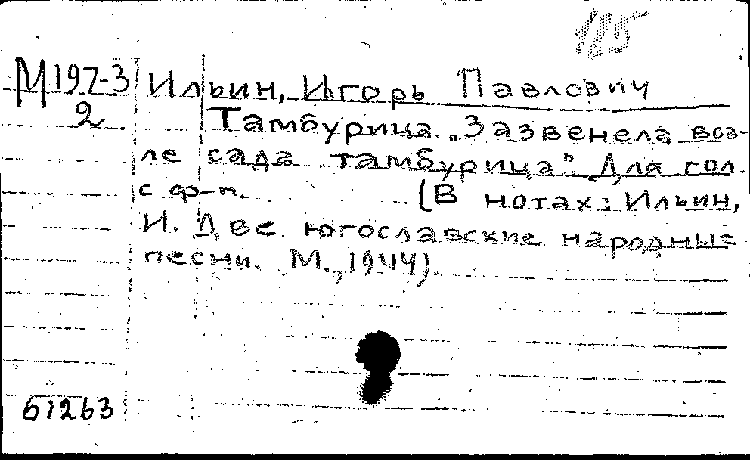 125
М197-3 Ильин, Игорь Павлович
2 Тамбурица. „Зазвенела воз-
ле сада тамбурица". Для гол.
с ф-п. (В нотах: Ильин,
И. Две югославские народные
песни. М., 1944).
61263